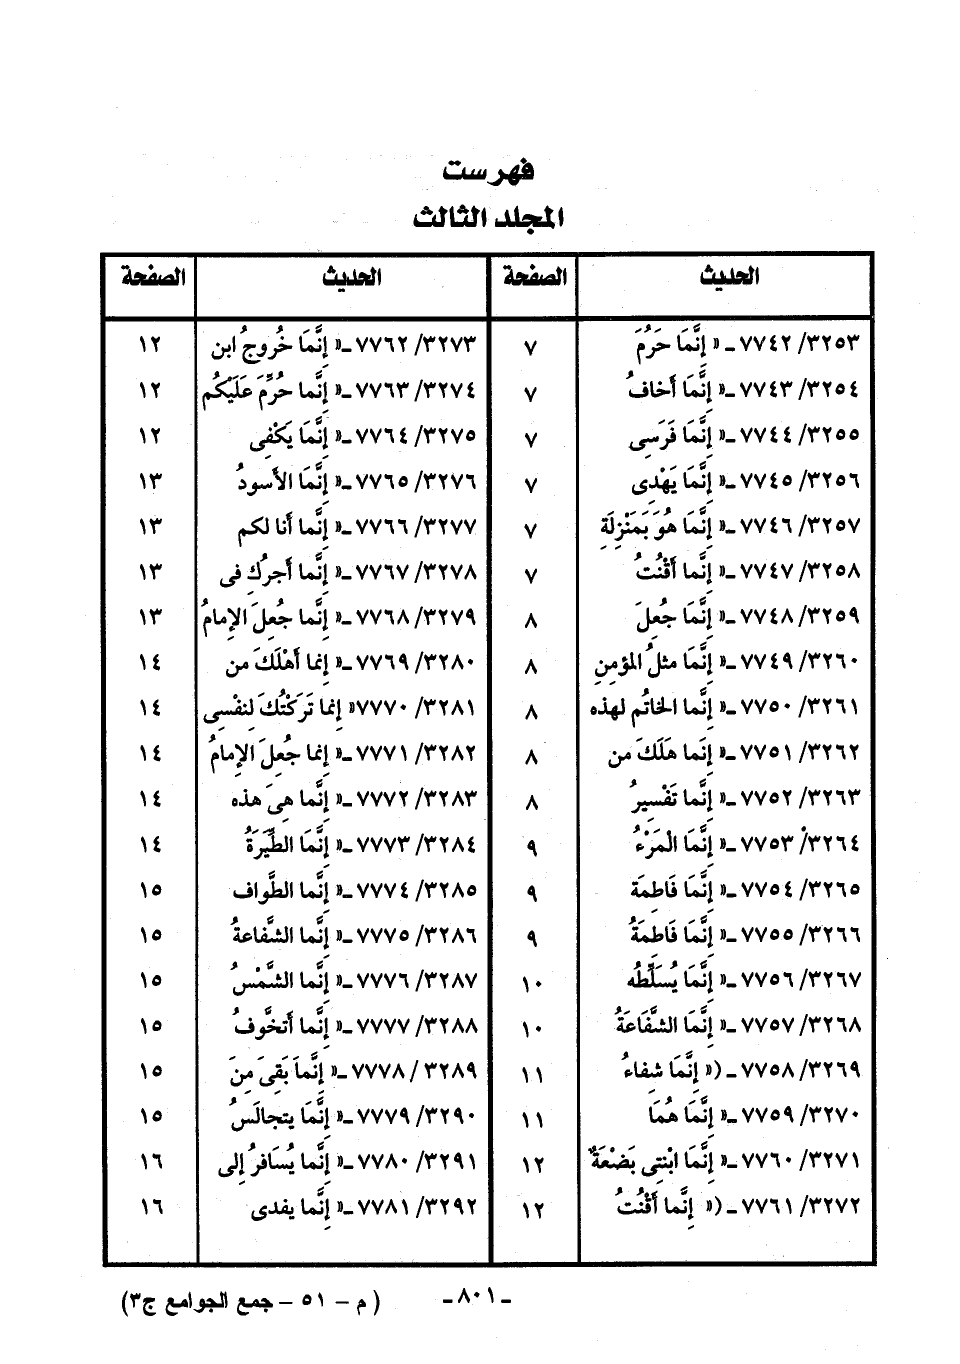 فهرست
المجلد الثالث
الحديث الصفحة الحديث الصفحة
٣٢٥٣/ ٧٧٤٢ ـ « إِنَّمَا حَرُمَ ٧ ٣٢٧٣/ ٧٧٦٢ ـ« إِنَّمَا خُروجُ ابن ١٢
٣٢٥٤/ ٧٧٤٣ ـ« إِنَّمَا أَخافُ ٧ ٣٢٧٤/ ٧٧٦٣ ـ« إِنَّما حُرِّمَ عَلَيْكُم ١٢
٣٢٥٥/ ٧٧٤٤ ـ« إِنَّمَا فَرَسِى ٧ ٣٢٧٥/ ٧٧٦٤ ـ« إِنَّمَا يَكْفِى ١٢
٣٢٥٦/ ٧٧٤٥ ـ« إِنَّمَا يَهْدِى ٧ ٣٢٧٦/ ٧٧٦٥ ـ« إِنَّمَا الأَسودُ ١٣
٣٢٥٧/ ٧٧٤٦ ـ« إِنَّمَا هُوَ بَمَنْزِلَةِ ٧ ٣٢٧٧/ ٧٧٦٦ ـ« إِنَّما أنا لكم ١٣
٣٢٥٨/ ٧٧٤٧ ـ« إِنَّما أَقْنُتُ ٧ ٣٢٧٨/ ٧٧٦٧ ـ« إِنَّما أجرُكِ فى ١٣
٣٢٥٩/ ٧٧٤٨ ـ« إِنَّمَا جُعِلَ ٨ ٣٢٧٩/ ٧٧٦٨ ـ« إِنَّما جُعِلَ الإِمامُ ١٣
٣٢٦٠/ ٧٧٤٩ ـ« إِنَّمَا مثلُ المؤمنِ ٨ ٣٢٨٠/ ٧٧٦٩ ـ« إِنما أَهْلَكَ من ١٤
٣٢٦١/ ٧٧٥٠ ـ« إِنَّما الخاتُم لهذه ٨ ٣٢٨١/ ٧٧٧٠« إِنما تَرَكْتُكَ لِنفْسِى ١٤
٣٢٦٢/ ٧٧٥١ ـ« إِنَما هَلَكَ من ٨ ٣٢٨٢/ ٧٧٧١ ـ« إِنما جُعِلَ الإِمامُ ١٤
٣٢٦٣/ ٧٧٥٢ ـ« إِنَّما تَفْسِيرُ ٨ ٣٢٨٣/ ٧٧٧٢ ـ« إِنَّما هِىَ هذه ١٤
٣٢٦٤/ ٧٧٥٣ ـ« إِنَّمَا الْمَرْءُ ٩ ٣٢٨٤/ ٧٧٧٣ ـ« إِنَّمَا الطِّيَرَةُ ١٤
٣٢٦٥/ ٧٧٥٤ ـ« إِنَّمَا فَاطِمَة ٩ ٣٢٨٥/ ٧٧٧٤ ـ« إِنَّما الطَّواف ١٥
٣٢٦٦/ ٧٧٥٥ ـ« إِنَّمَا فَاطِمَةُ ٩ ٣٢٨٦/ ٧٧٧٥ ـ« إِنَّما الشَّفاعةُ ١٥
٣٢٦٧/ ٧٧٥٦ ـ« إِنَّمَا يُسَلِّطُه ١٠ ٣٢٨٧/ ٧٧٧٦ ـ« إِنَّما الشَّمْسُ ١٥
٣٢٦٨/ ٧٧٥٧ ـ« إِنَّمَا الشَّفَاعَةُ ١٠ ٣٢٨٨/ ٧٧٧٧ ـ« إِنَّما أَتخَّوفُ ١٥
٣٢٦٩/ ٧٧٥٨ ـ («إِنَّمَا شِفاءُ ١١ ٣٢٨٩/ ٧٧٧٨ ـ« إِنَّمَا بَقِىَ مِنَ ١٥
٣٢٧٠/ ٧٧٥٩ ـ« إِنَّمَا هُمَا ١١ ٣٢٩٠/ ٧٧٧٩ ـ« إِنَّمَا يتجالَسُ ١٥
٣٢٧١/ ٧٧٦٠ ـ« إِنَّمَا ابْنتِى بَضْعَةٌ ١٢ ٣٢٩١/ ٧٧٨٠ ـ« إِنَّما يُسَافرُ إلى ١٦
٣٢٧٢/ ٧٧٦١ ـ (« إِنَّما أَقْنُتُ ١٢ ٣٢٩٢/ ٧٧٨١ ـ« إِنَّما يفدى ١٦
ـ ٨٠١ ـ (م – ٥١ – جمع الجوامع ج٣)